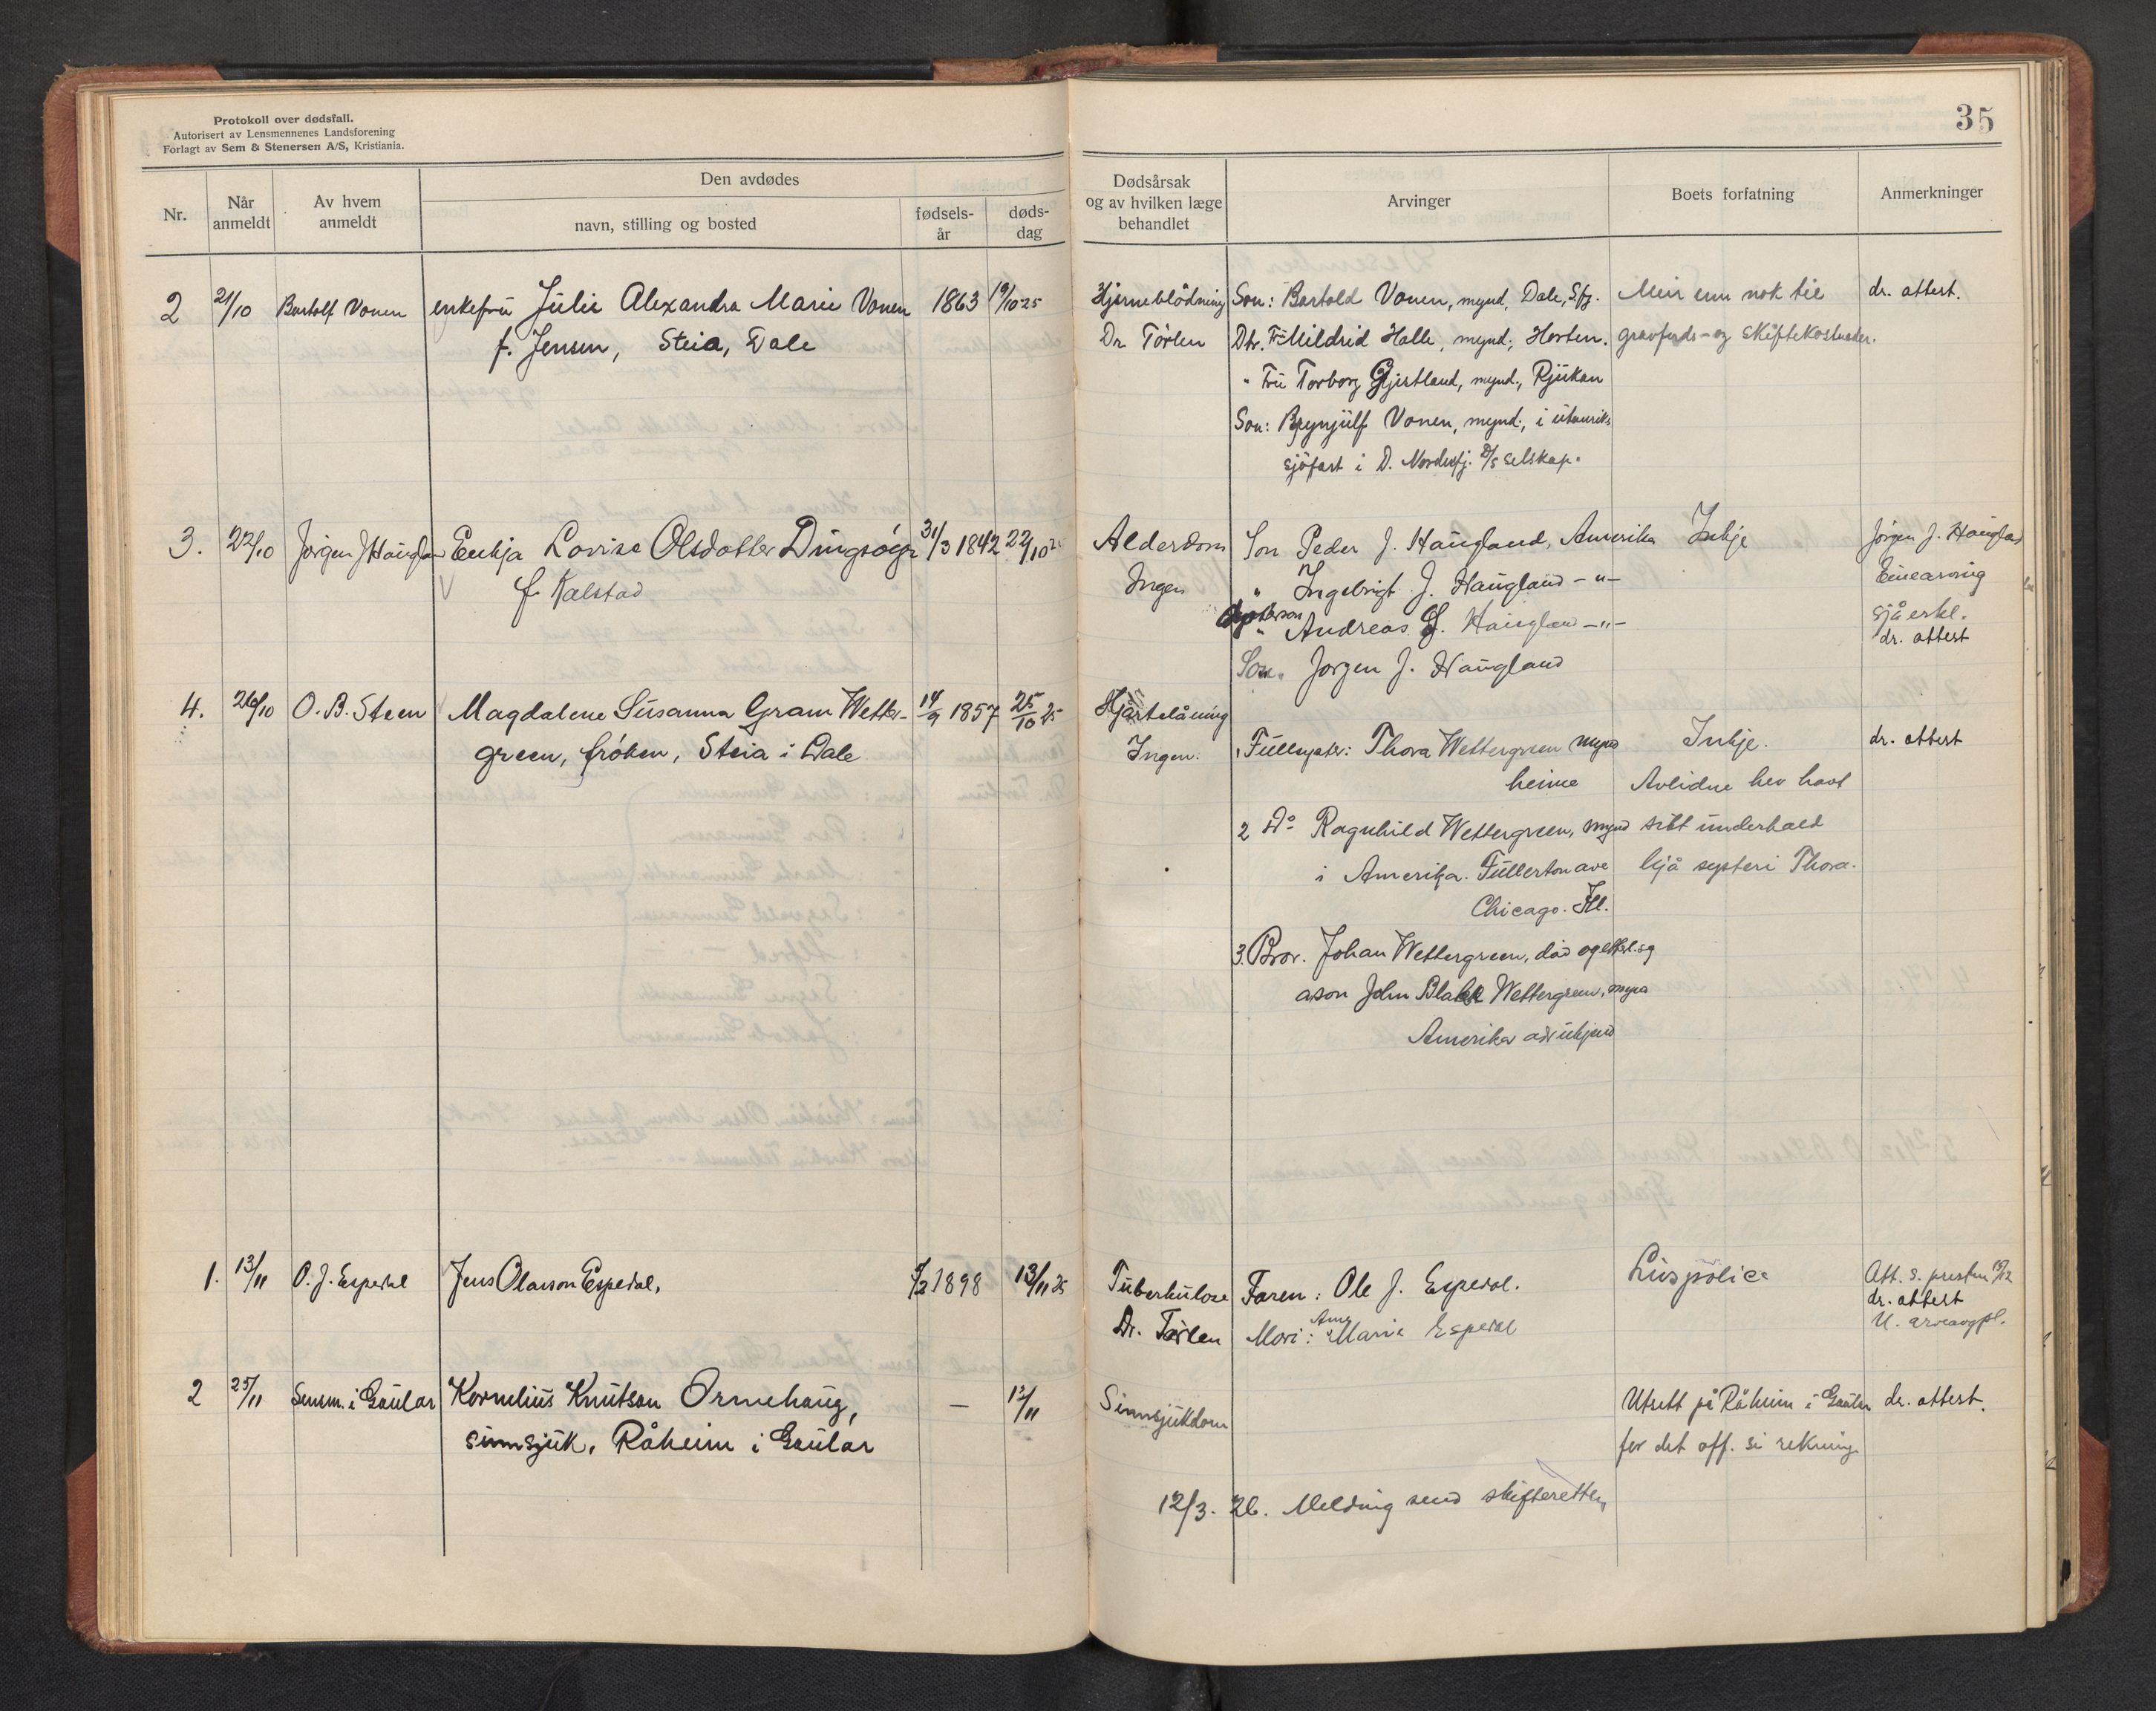 Protokoll over dødsfall.
Autorisert av Lensmennenes Landsforening
Forlagt av Sem & Stenersen A/S, Kristiania.
35
Nr.
Når anmeldt
Av hvem anmeldt
Den avdødes
navn, stilling og bosted
fødsels-år
døds-dag
Dødsårsak og av hvilken læge behandlet
Arvinger
Boets forfatning
Anmerkninger
2 21/10 Bartolf Vonen enkefru Julie Alexandra Marie Vonen 1863 19/10 25 Hjerneblødning Son: Bartold Vonen, mynd, Dale, Sfj. Meir enn nok til dr. attest.
f. Jensen, Steia, Dale Dr. Tørlen Dtr. Fr. Mildrid Halle, mynd., Horten. gravferds- og skiftekostnader.
" Fru Torborg Gjestland, mynd., Rjukan
Son: Brynjulf Vonen, mynd., i utanriks
sjöfart i D. Nordenfj. D/S selskap.
3. 22/10 Jørgen J Haugland Enkja Lovise Olsdotter Dingsøyr 31/3 1842 22/10 25 Alderdom Son Peder J. Haugland, Amerika Inkje Jørgen J. Haugland
f. Kalstad Ingen " Ingebrigt J. Haugland -"- Einearving
Dotterson Andreas J. Haugland -"- sjå erkl.
dr. attest
Son Jørgen J. Haugland
4. 26/10 O. B. Steen Magdalene Susanna Gram Wetter- 14/9 1857 25/10 25 Hjartelåming
green, frøken, Steia i Dale Ingen. 1. Fullsyster: Thora Wettergreen mynd Inkje. dr. attest
heime Avlidne hev havt
2 Do Ragnhild Wettergreen, mynd sitt underhald
i Amerika. Fullerton ave hjå systeri Thora.
Chicago. Ill.
3. Bror. Johan Wettergreen, død og etterl. eg
ason John Blakk Wettergreen, mynd
Amerika adr ukjend
1. 13/11 O. J. Espedal Jens Olavson Espedal, /2 1898 13/11 25 Tuberkulose Faren: Ole J. Espedal. Livspolice Att. s. presten /12
dr. attest
Dr. Tørlen Mori: Anne Marie Espedal U. arveavgpl.
2 25/11 Lensm. i Gaular Kornelius Knutson Ormehaug, — 12/11 Sinnsjukdom Utsett på Råheim i Gaular dr. attest.
sinnsjuk, Råheim i Gaular for det off. si rekning
12/3. 26. Melding send skifteretten